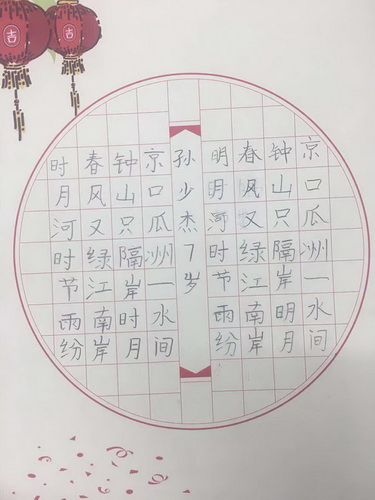 吉
吉
京口瓜洲一水间
钟山只隔岸明月
春风又绿江南岸
明月河时节雨纷
孙少杰7岁
京口瓜洲一水间
钟山只隔岸时月
春风又绿江南岸
时月河时节雨纷